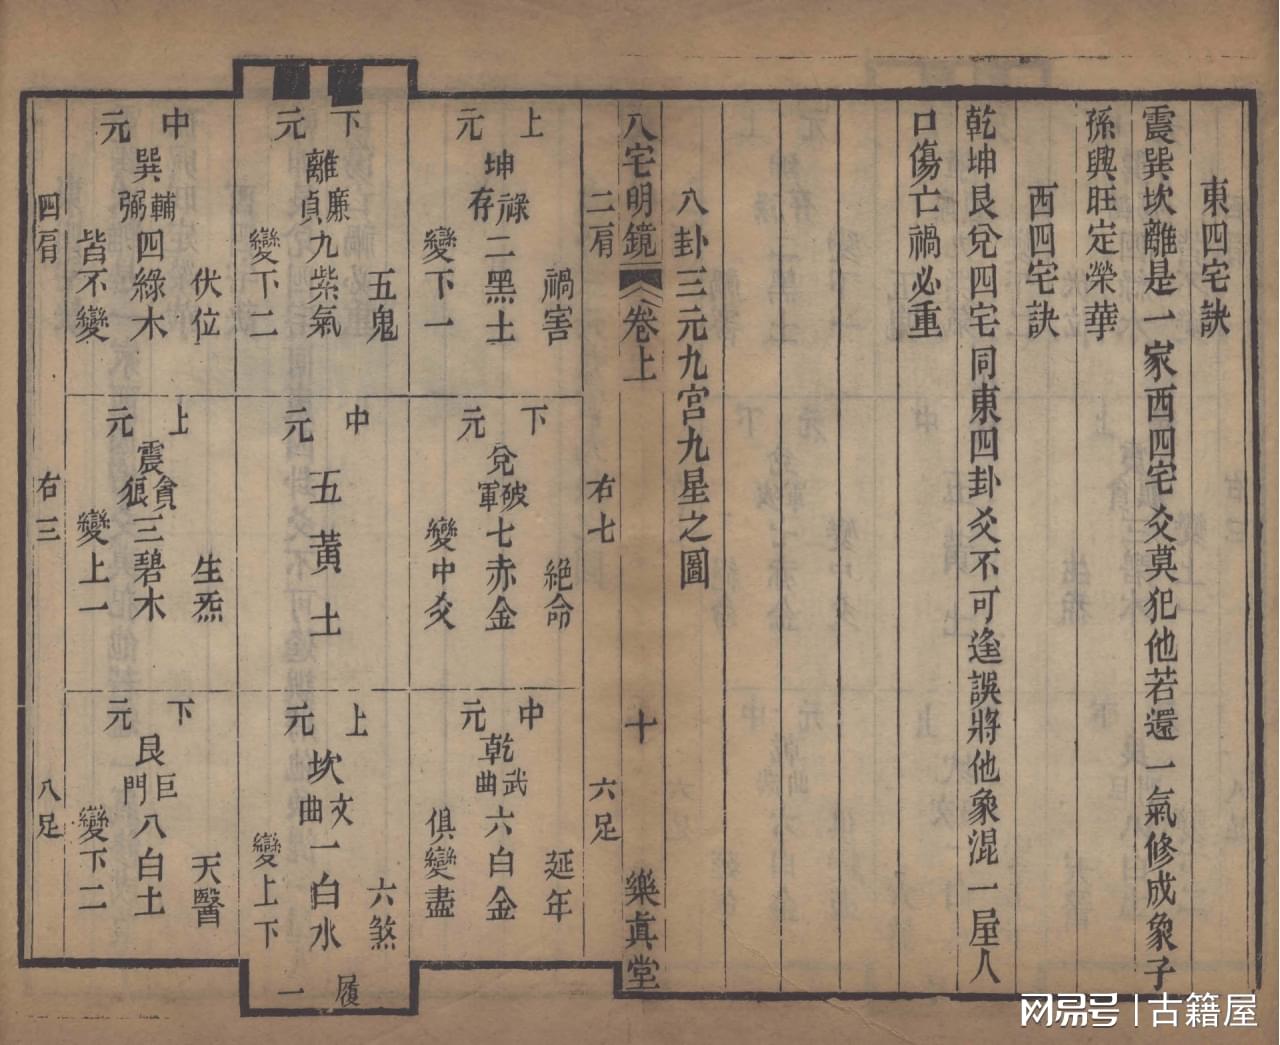 東四宅訣
震巽坎離是一家西四宅爻莫犯他若還一氣修成象子
孫興旺定榮華
西四宅訣
乾坤艮兌四宅同東四卦爻不可逢誤將他象混一屋人
口傷亡禍必重
八卦三元九宮九星之圖
八宅明鏡 卷上 十 樂真堂
二肩
右七
六足
上元
坤祿存二黑土
禍害
變下一
下元
兌破軍七赤金
絕命
變中爻
中元
乾武曲六白金
延年
俱變盡
下元
離廉貞九紫氣
五鬼
變下二
中元
五黃土
上元
坎文曲一白水
六煞
變上下
履一
中元
巽輔弼四綠木
伏位
皆不變
上元
震貪狼三碧木
生炁
變上一
下元
艮巨門八白土
天醫
變下二
四肩
右三
八足
网易号 | 古籍屋